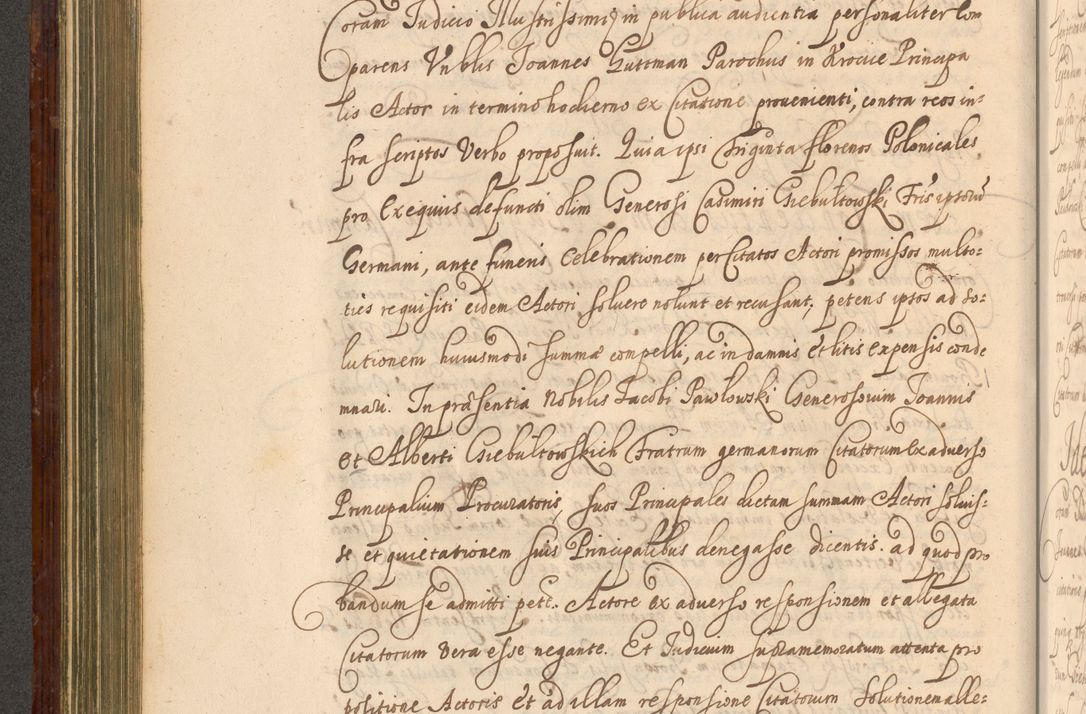 Coram Iudicio Illustrissimi in publica audientia personaliter Com
parens Vnblis Ioannes Guttman Parochus in Krocice Principa
lis Actor in termino hodierno ex Citatione provenienti, contra reos in-
fra scriptos Verbo proposuit. Quia ipsi Triginta florenos Polonicales
pro Exequiis defuncti olim Generosi Casimiri Giebułtowski Fris iptorū
Germani, ante funeris Celebrationem per Citatos Actori promissos multo-
ties requisiti eidem Actori solvere nolunt et recusant, petens iptos ad so-
lutionem huiusmodi summæ compelli, ac in damnis et litis expensis conde
mnari. In præsentia Nobilis Iacobi Pawlowski Generosorum Ioannis
et Alberti Giebułtowskich Fratrum germanorum Citatorum ex adverso
Principalium Procuratoris, suos Principales dictam summam Actori solvis-
se et quietationem suis Principalibus denegasse dicentis. ad quod pro
bandum se admitti pett. Actore ex adverso responsionem et allegata
Citatorum vera esse negante. Et Iudicium supramemoratum attenta pro
positione Actoris et ad illam responsione Citatorum Solutionem alle-